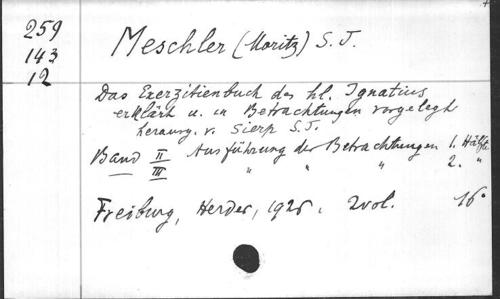 259
143
12
Meschler (Moritz) S. J.
Das Exerzitienbuch des hl. Ignatius
erklärt u. in Betrachtungen vorgelegt
herausg. v. Sierp S.J.
Band II Ausführung der Betrachtungen 1. Hälfte
III " " " 2. "
Freiburg, Herder, 1926. 2 vol. 16°